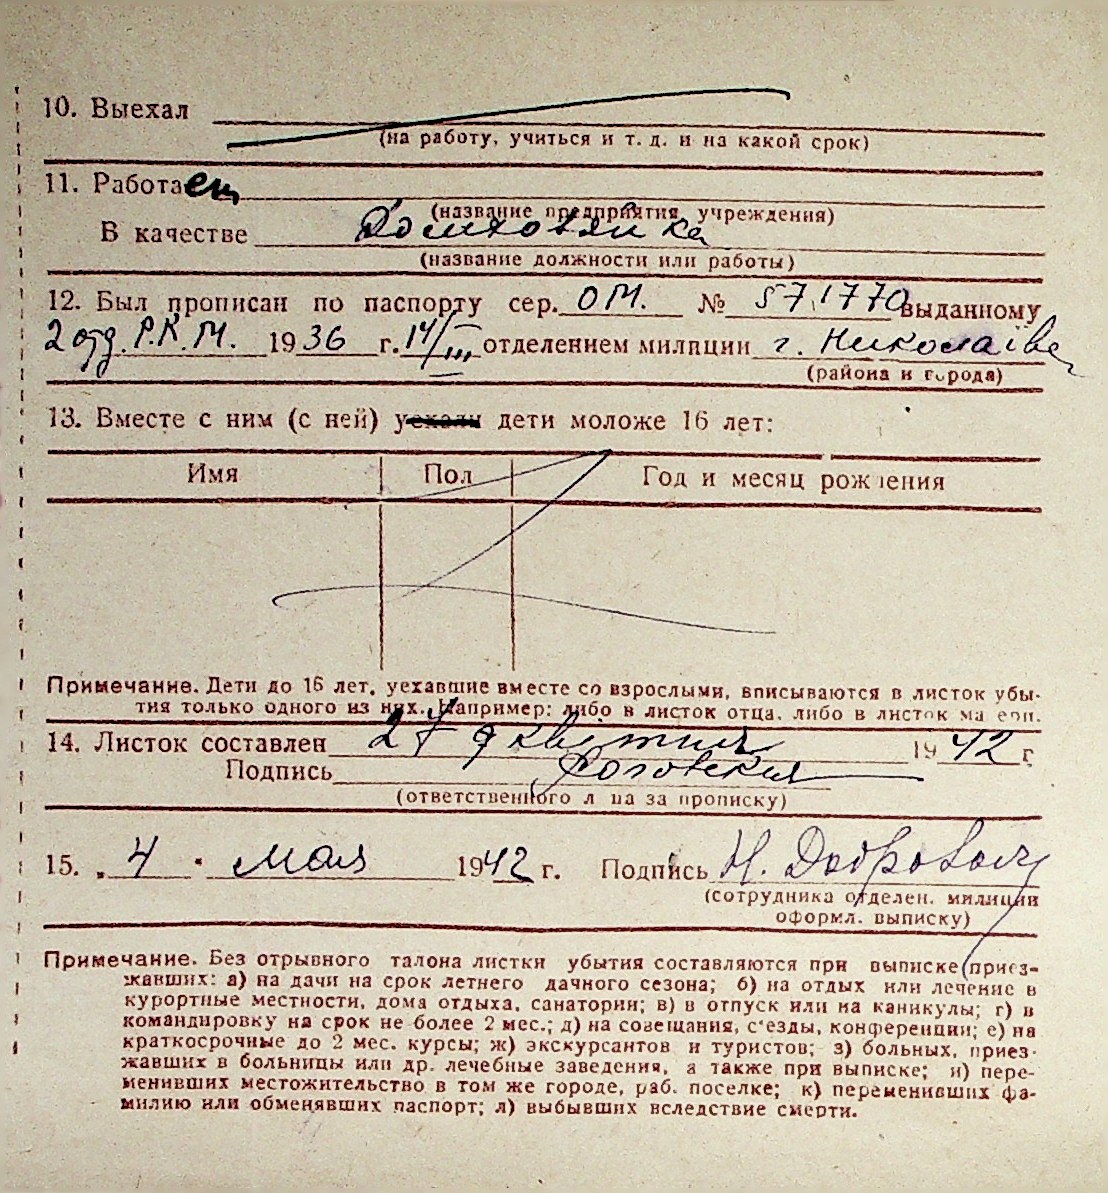 10. Выехал
(на работу, учиться и т. д. и на какой срок)
11. Работает
(название предприятия, учреждения)
В качестве Домхозяйка
(название должности или работы)
12. Был прописан по паспорту сер. ОМ. № 571770 выданному
2 отд. Р.К.М. 1936 г. 14/III отделением милиции г. Николаїве
(района и города)
13. Вместе с ним (с ней) уехали дети моложе 16 лет:
Имя Пол Год и месяц рождения
Примечание. Дети до 16 лет, уехавшие вместе со взрослыми, вписываются в листок убы-
тия только одного из них. Например: либо в листок отца, либо в листок матери.
14. Листок составлен 27 квітня 1942 г.
Подпись
(ответственного лица за прописку)
15. „ 4 " мая 1942 г. Подпись Н. Добровол
(сотрудника отделен. милиции
оформл. выписку)
Примечание. Без отрывного талона листки убытия составляются при выписке приез-
жавших: а) на дачи на срок летнего дачного сезона; б) на отдых или лечение в
курортные местности, дома отдыха, санатории; в) в отпуск или на каникулы; г) в
командировку на срок не более 2 мес.; д) на совещания, с'езды, конференции; е) на
краткосрочные до 2 мес. курсы; ж) экскурсантов и туристов; з) больных, приез-
жавших в больницы или др. лечебные заведения, а также при выписке; и) пере-
менивших местожительство в том же городе, раб. поселке; к) переменивших фа-
милию или обменявших паспорт; л) выбывших вследствие смерти.